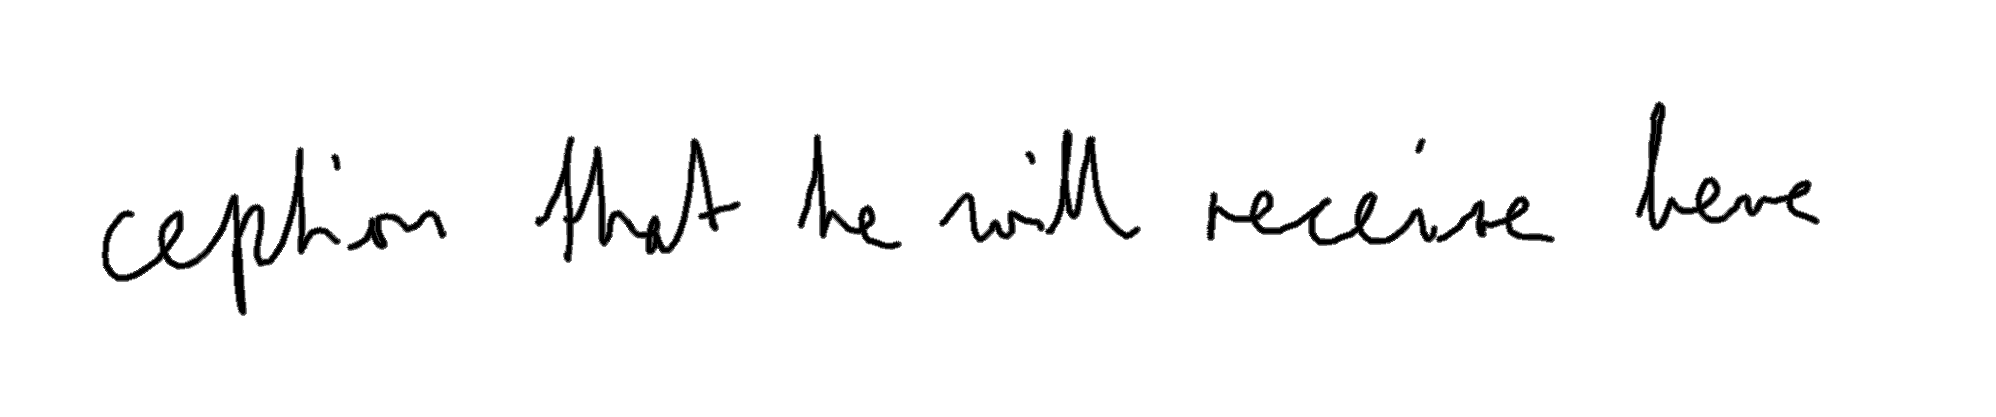 ception that he will receive here